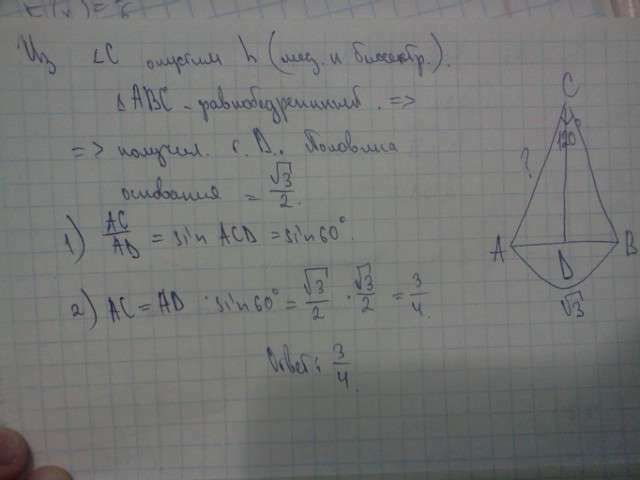 Из ∠C опустим h (мед. и биссектр.).
△ABC - равнобедренный. =>
=> получил. т. D. Половина
основания = √3/2.
1) AC/AD = sin ACD = sin 60°
2) AC = AD · sin 60° = √3/2 · √3/2 = 3/4.
Ответ: 3/4.
C
120
?
A
D
B
√3